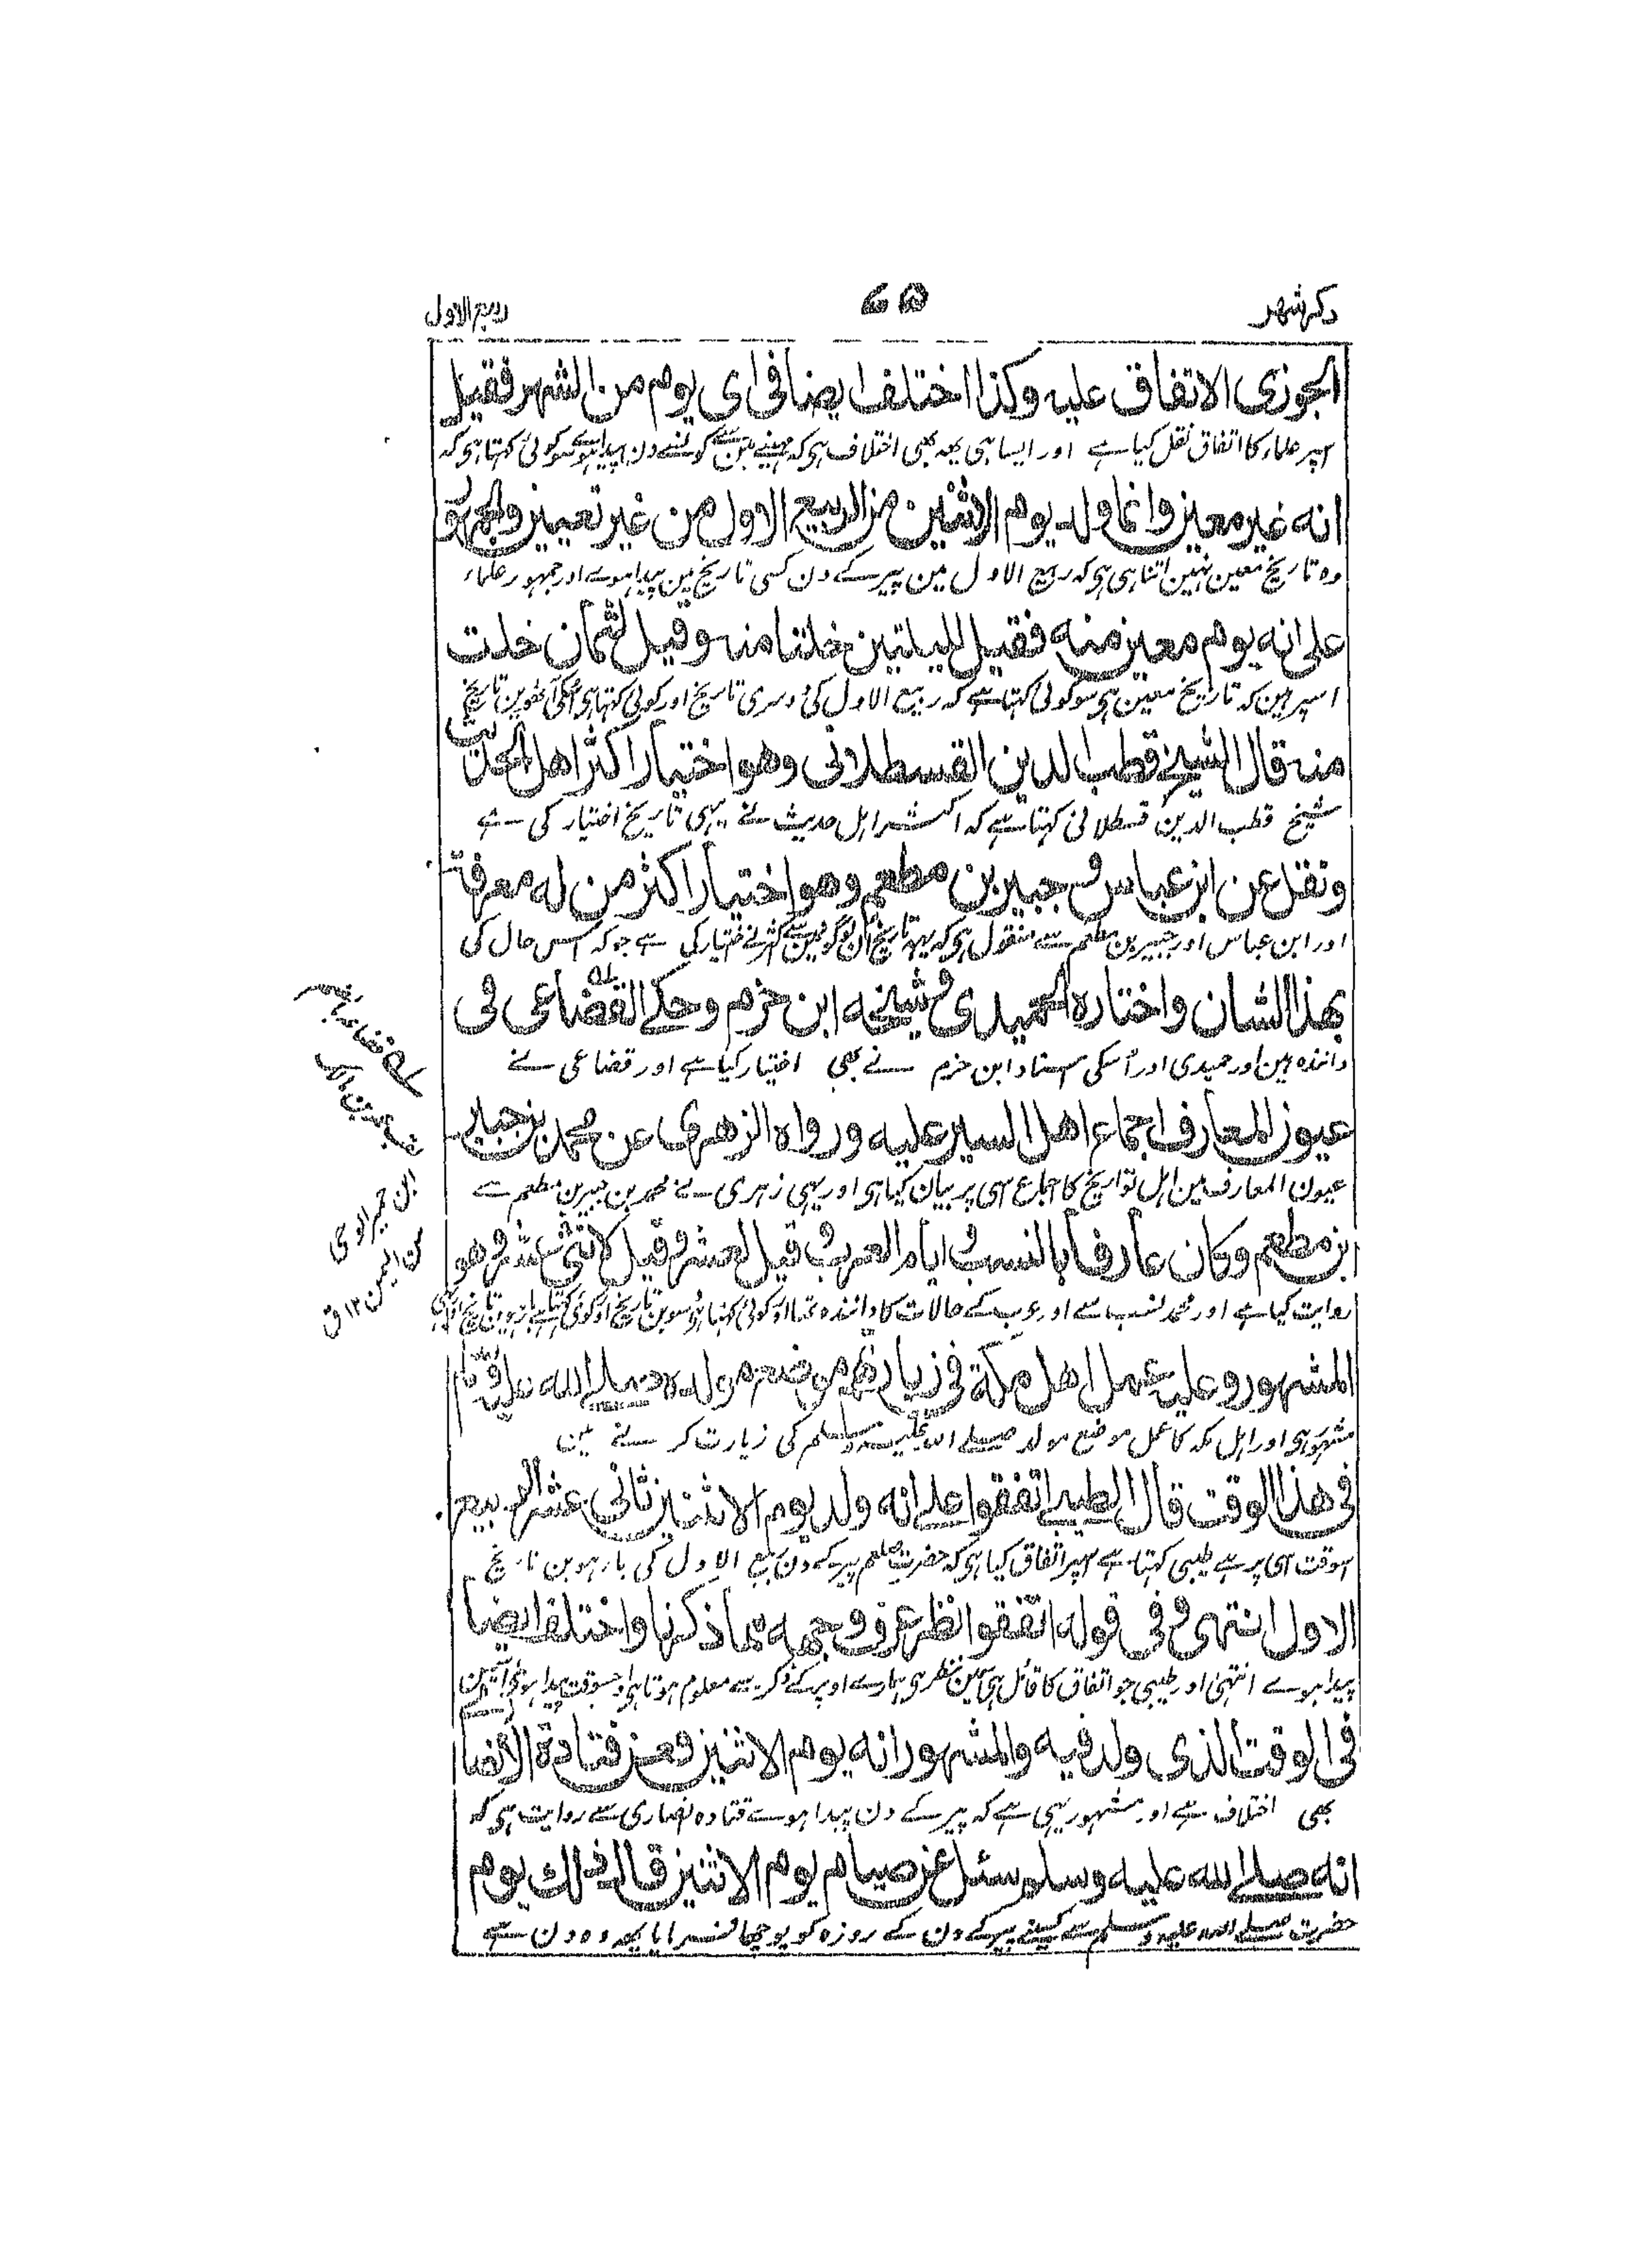 ذكر شهر
٦٥
ربيع الاول
الجوزى الاتفاق عليه وكذا اختلف ايضا فى اى يوم من الشهر فقيل
اسپر علماء کا اتفاق نقل کیا ہے اور ایسا ہی یہہ بھی اختلاف ہی کہ مہینے میں سے کونسے دن پیدا ہوے سو کوئی کہتا ہی کہ
انه غير معين وانما ولد يوم الاثنين من الربيع الاول من غير تعيين والجمهور
وہ تاریخ معین نہین اتنا ہی ہی کہ ربیع الاول مین پیر کے دن کسی تاریخ مین پیدا ہوے اور جمہور علماء
على انه يوم معين منه فقيل لليلتين خلتا منه وقيل لثمان خلت
اسپر ہین کہ تاریخ معین ہی سو کوئی کہتا ہے کہ ربیع الاول کی دوسری تاریخ اور کوئی کہتا ہی اسکی آٹھوین تاریخ
منه قال الشيخ قطب الدين القسطلانى وهو اختيار اكثر اهل الحديث
شیخ قطب الدین قسطلانی کہتا ہے کہ اکثر اہل حدیث نے یہی تاریخ اختیار کی ہے
ونقل عن ابن عباس وجبير بن مطعم وهو اختيار اكثر من له معرفة
اور ابن عباس اور جبیر بن مطعم سے منقول ہی کہ یہہ تاریخ ان لوگونمین سے اکثر نے اختیار کی ہے جو کہ اس حال کی
بهذا الشان واختاره الحميدى وشيخه ابن حزم وحكى القضاعى فى
دانندہ ہین اور حمیدی اور اسکی استاد ابن حزم نے بھی اختیار کیا ہے اور قضاعی نے
عيون المعارف اجماع اهل السير عليه ورواه الزهرى عن محمد بن جبير
عیون المعارف مین اہل تواریخ کا اجماع اسی پر بیان کیا ہی اور یہی زہری نے محمد بن جبیر بن مطعم سے
ابن مطعم وكان عارفا بالنسب وايام العرب وقيل لعشر وقيل لاثنى عشر وهو
روایت کیا ہے اور محمد نسب سے اور عرب کے حالات کا دانندہ تھا اور کوئی کہتا ہی دسوین تاریخ اور کوئی کہتا ہے بارہوین تاریخ اور یہی
المشهور وعليه عمل اهل مكة فى زيارتهم موضع مولده صلى الله عليه وسلم
مشہور ہی اور اہل مکہ کا عمل موضع مولد صلے اللہ علیہ وسلم کی زیارت کرنے مین
فى هذا الوقت قال الطيبى اتفقوا على انه ولد يوم الاثنين ثانى عشر الربيع
اسوقت اسی پر ہے طیبی کہتا ہے اسپر اتفاق کیا ہی کہ حضرت صلعم پیر کے دن ربیع الاول کی بارہوین تاریخ
الاول انتهى وفى قوله اتفقوا نظر عرف وجهه مما ذكرنا واختلف ايضا
پیدا ہوے انتہیٰ اور طیبی جو اتفاق کا قائل ہی اسمین نظر ہی ہمارے اوپر کے ذکر سے معلوم ہوتا ہی اور جسوقت پیدا ہوئی اسمین
فى الوقت الذى ولد فيه والمشهور انه يوم الاثنين فعن قتادة الانصا
بھی اختلاف ہے اور مشہور یہی ہے کہ پیر کے دن پیدا ہوے قتادہ انصاری سے روایت ہی کہ
انه صلى الله عليه وسلم سئل عن صيام يوم الاثنين قال ذلك يوم
حضرت صلے اللہ علیہ وسلم سے کسینے پیر کے دن کے روزہ کو پوچھا فرمایا یہہ وہ دن ہے
قضاعه
بن مالک
ابن حمیر ابو حی
من الیمن ١٢ ق